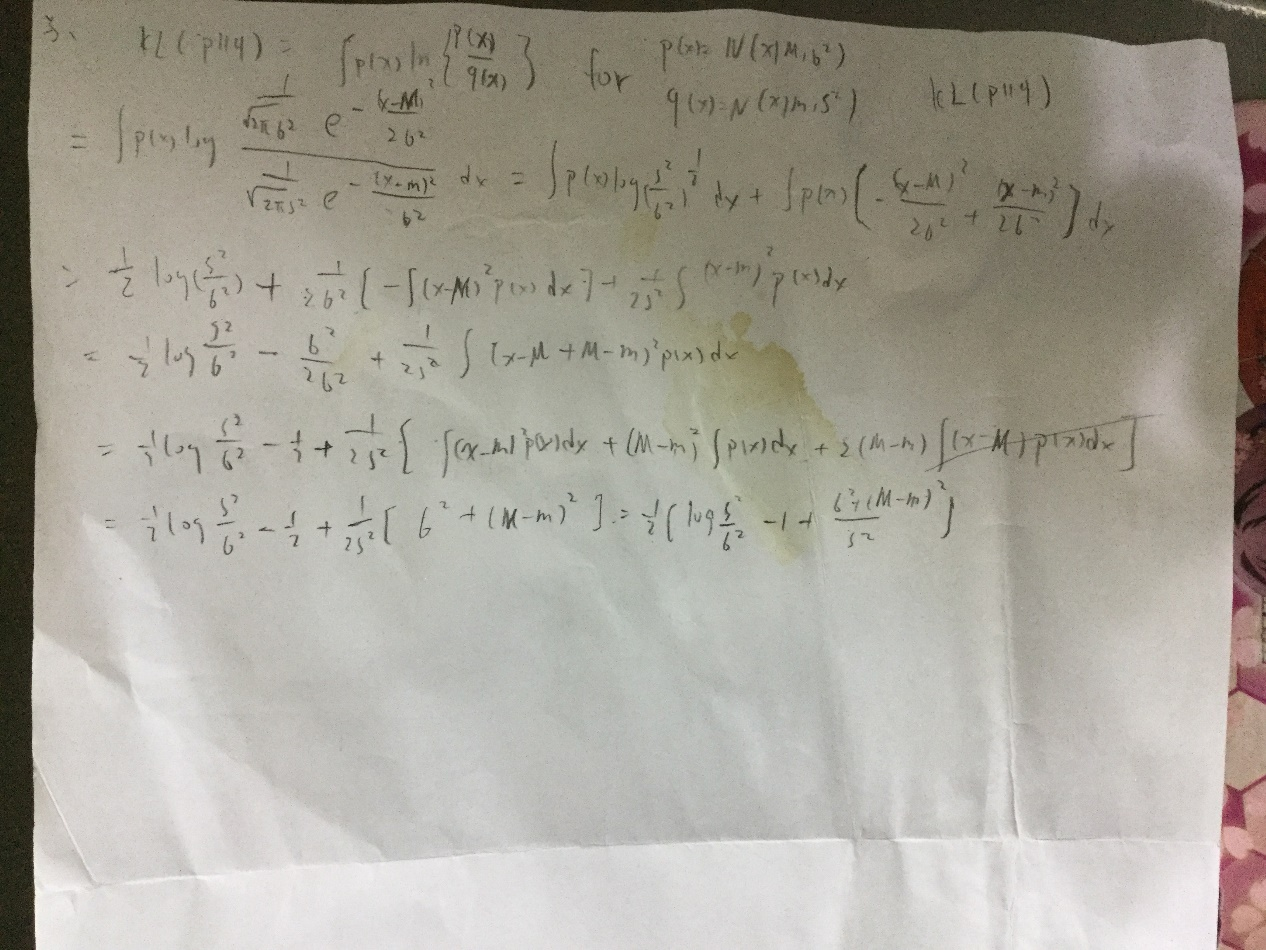 3、 KL(p||q) = ∫p(x) ln{p(x)/q(x)} for p(x) = N(x|M, 6²)
q(x) = N(x|m, s²) KL(p||q)
= ∫p(x) log (1/√2π6² e^-(x-M)²/26²) / (1/√2πs² e^-(x-m)²/62) dx = ∫p(x) log(s²/6²)^½ dx + ∫p(x) [-(x-M)²/26² + (x-m)²/26²] dx
= ½ log(s²/6²) + 1/26² [-∫(x-M)² p(x) dx] + 1/2s² ∫(x-m)² p(x) dx
= ½ log s²/6² - 6²/26² + 1/2s² ∫ (x-M+M-m)² p(x) dx
= ½ log s²/6² - ½ + 1/2s² [∫(x-M)² p(x) dx + (M-m)² ∫p(x) dx + 2(M-m) ∫(x-M) p(x) dx]
= ½ log s²/6² - ½ + 1/2s² [6² + (M-m)²] = ½ [log s²/6² - 1 + 6²+(M-m)²/s²]